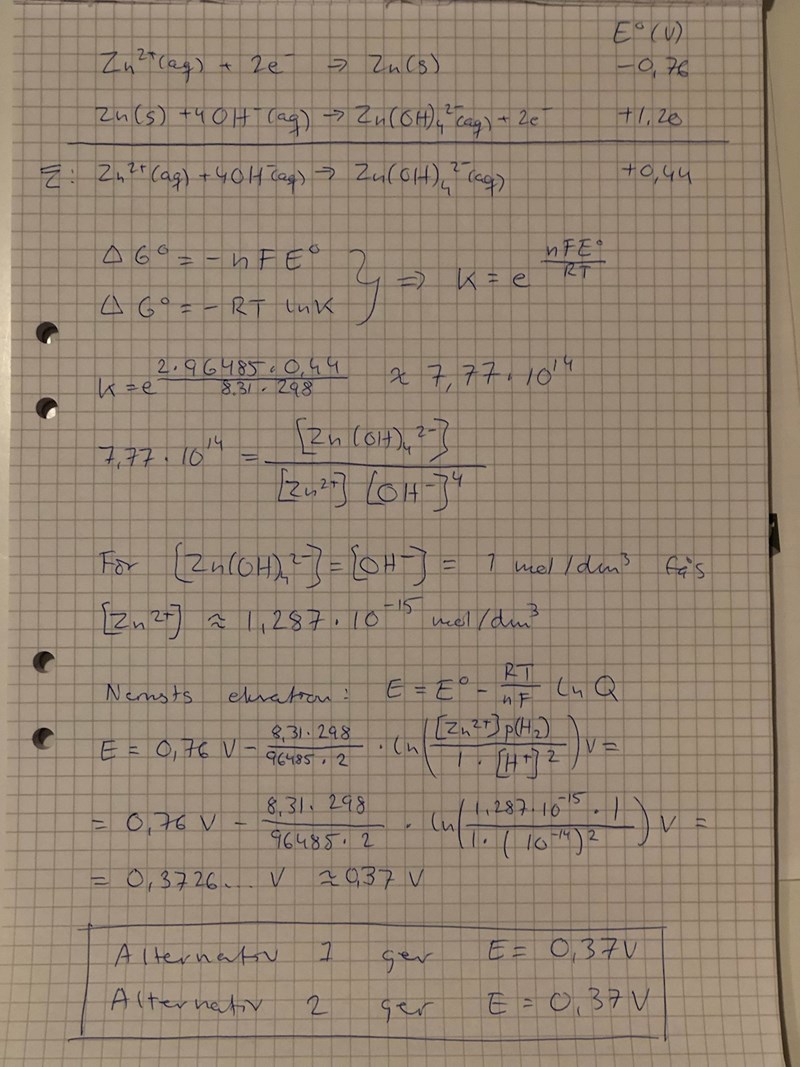 E° (V)
Zn²⁺(aq) + 2e⁻ → Zn(s) -0,76
Zn(s) + 4OH⁻(aq) → Zn(OH)₄²⁻(aq) + 2e⁻ +1,20
Σ: Zn²⁺(aq) + 4OH⁻(aq) → Zn(OH)₄²⁻(aq) +0,44
ΔG° = -nFE°
ΔG° = -RT lnK } ⇒ K = e^(nFE°/RT)
K = e^(2·96485·0,44/8,31·298) ≈ 7,77·10¹⁴
7,77·10¹⁴ = [Zn(OH)₄²⁻]/[Zn²⁺][OH⁻]⁴
För [Zn(OH)₄²⁻] = [OH⁻] = 1 mol/dm³ fås
[Zn²⁺] ≈ 1,287·10⁻¹⁵ mol/dm³
Nernsts ekvation: E = E° - RT/nF ln Q
E = 0,76 V - 8,31·298/96485·2 · ln([Zn²⁺]p(H₂)/1·[H⁺]²) V =
= 0,76 V - 8,31·298/96485·2 · ln(1,287·10⁻¹⁵·1/1·(10⁻¹⁴)²) V =
= 0,3726... V ≈ 0,37 V
Alternativ 1 ger E = 0,37 V
Alternativ 2 ger E = 0,37 V